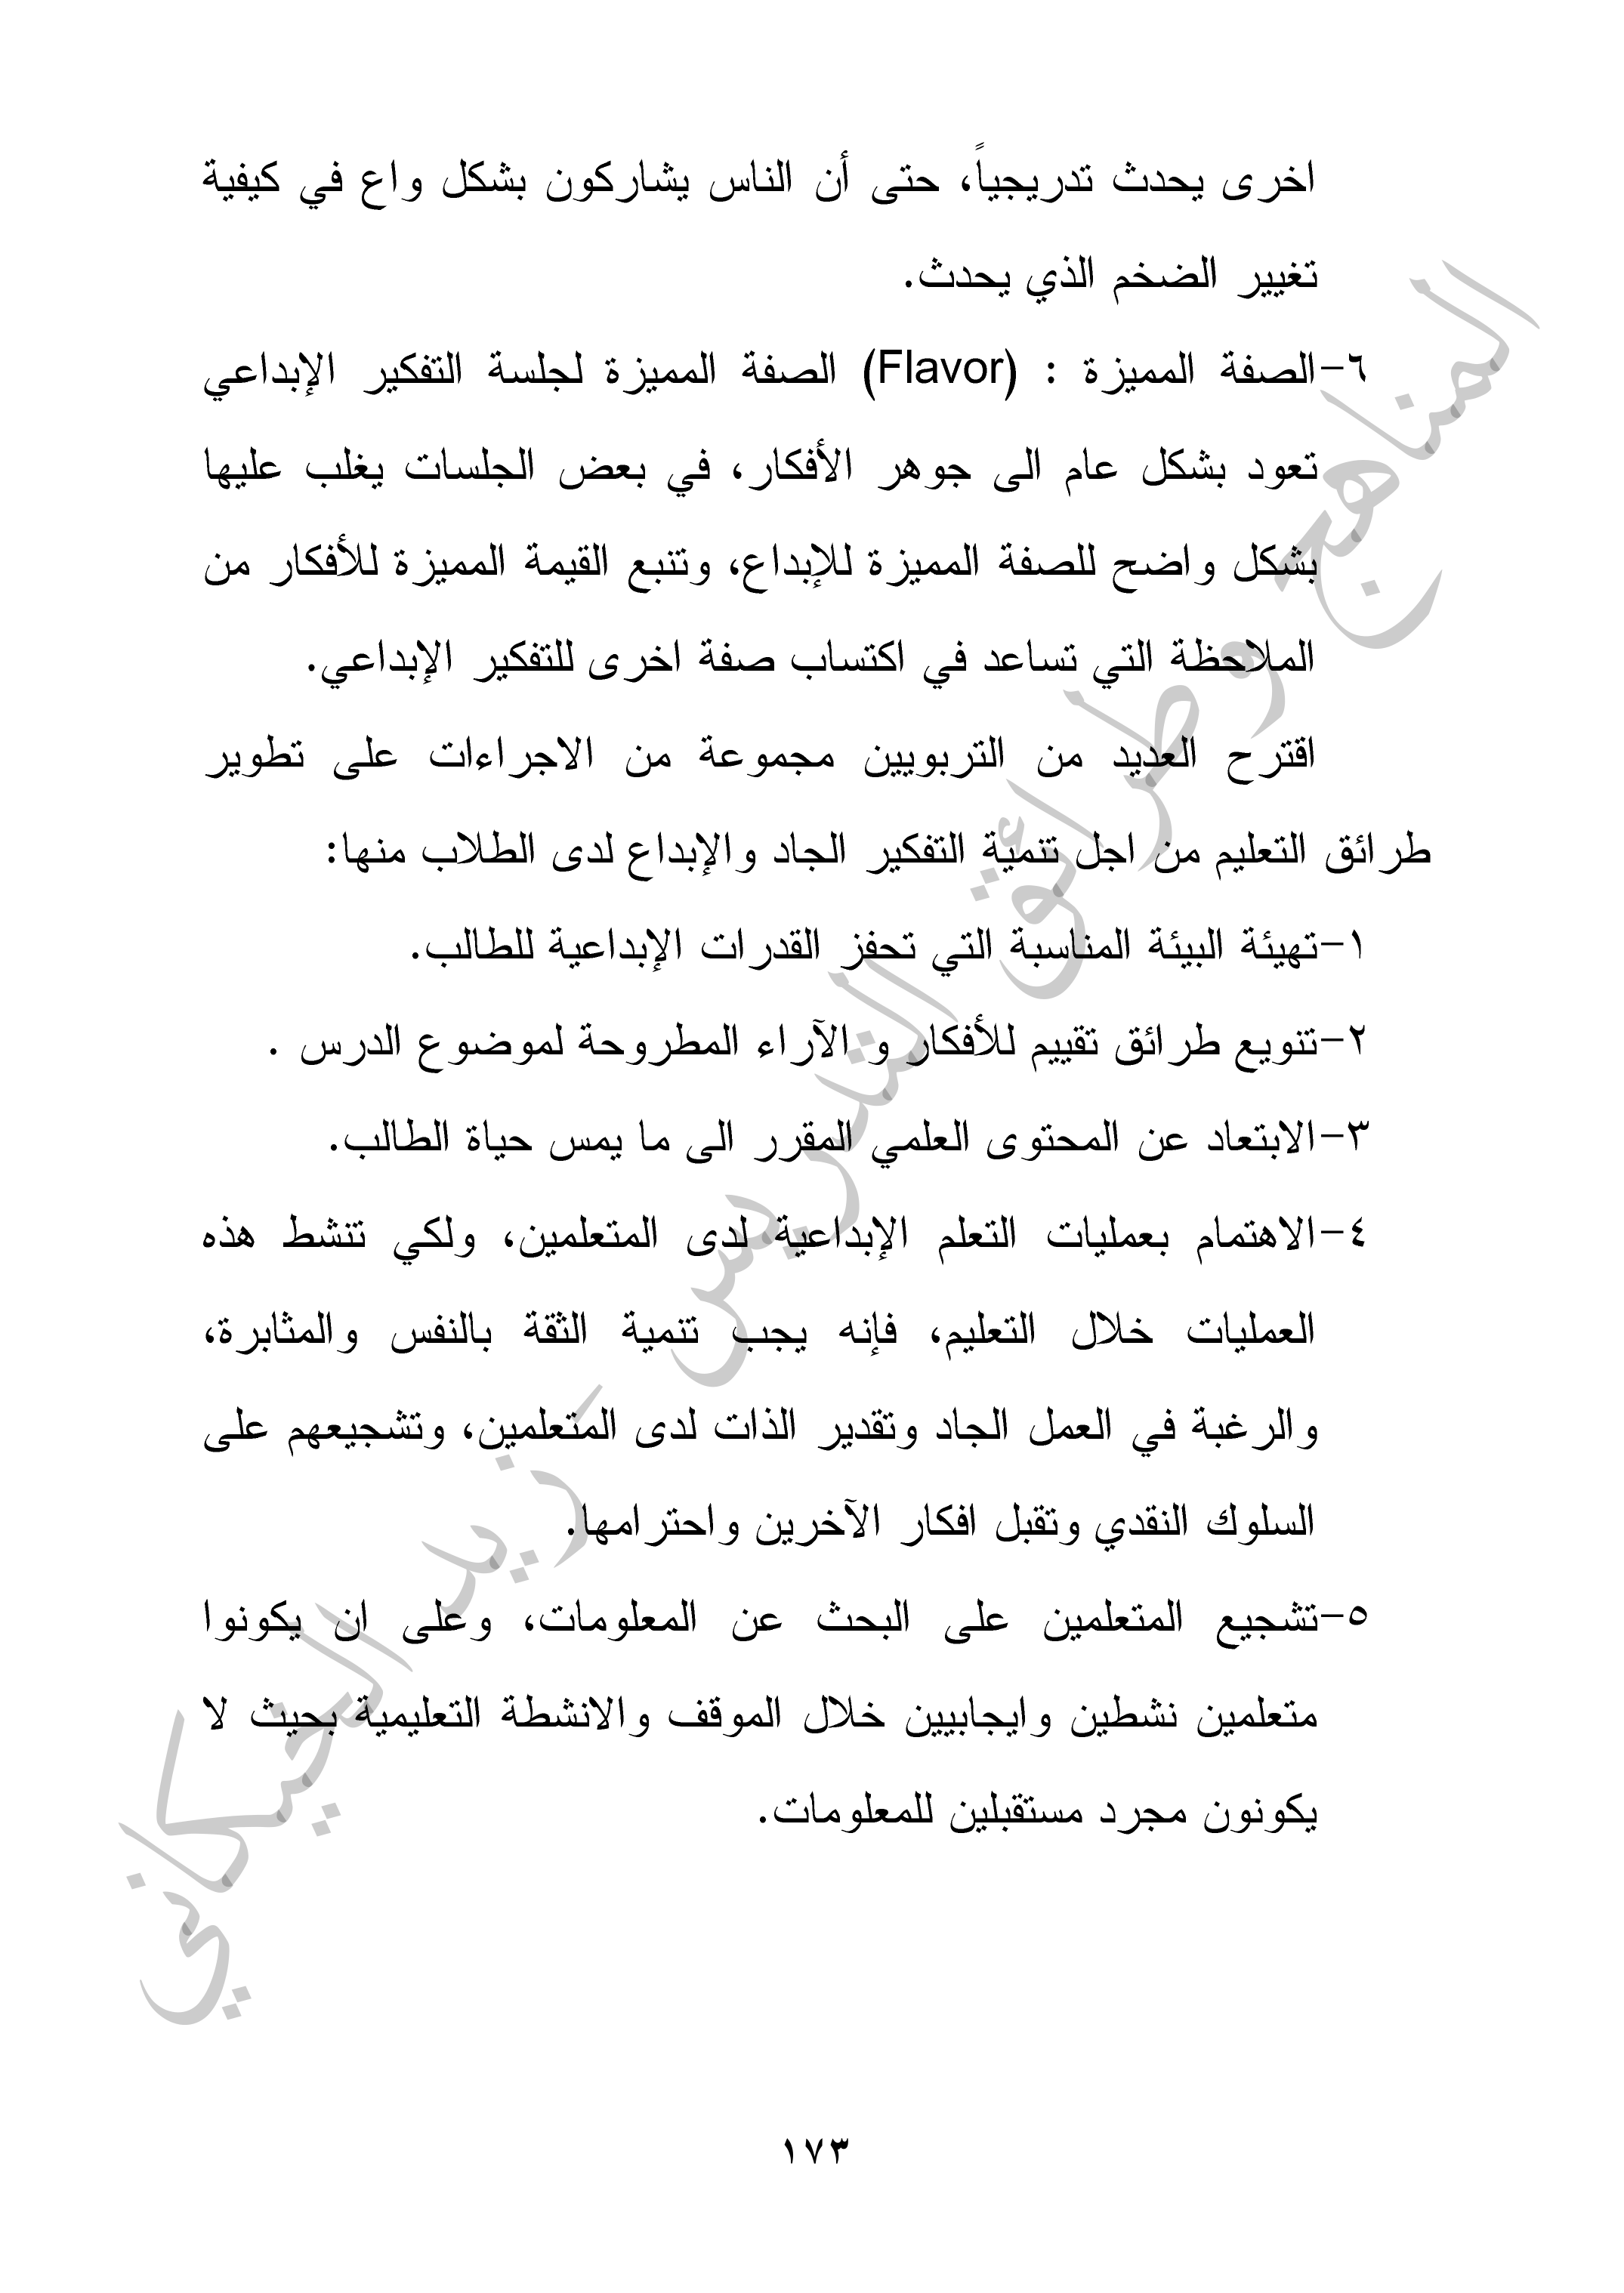 اخرى يحدث تدريجياً، حتى أن الناس يشاركون بشكل واع في كيفية
تغيير الضخم الذي يحدث.
٦-الصفة المميزة : (Flavor) الصفة المميزة لجلسة التفكير الإبداعي
تعود بشكل عام الى جوهر الأفكار، في بعض الجلسات يغلب عليها
بشكل واضح للصفة المميزة للإبداع، وتنبع القيمة المميزة للأفكار من
الملاحظة التي تساعد في اكتساب صفة اخرى للتفكير الإبداعي.
اقترح العديد من التربويين مجموعة من الاجراءات على تطوير
طرائق التعليم من اجل تنمية التفكير الجاد والإبداع لدى الطلاب منها:
١-تهيئة البيئة المناسبة التي تحفز القدرات الإبداعية للطالب.
٢-تنويع طرائق تقييم للأفكار و الآراء المطروحة لموضوع الدرس .
٣-الابتعاد عن المحتوى العلمي المقرر الى ما يمس حياة الطالب.
٤-الاهتمام بعمليات التعلم الإبداعية لدى المتعلمين، ولكي تنشط هذه
العمليات خلال التعليم، فإنه يجب تنمية الثقة بالنفس والمثابرة،
والرغبة في العمل الجاد وتقدير الذات لدى المتعلمين، وتشجيعهم على
السلوك النقدي وتقبل افكار الآخرين واحترامها.
٥-تشجيع المتعلمين على البحث عن المعلومات، وعلى ان يكونوا
متعلمين نشطين وايجابيين خلال الموقف والانشطة التعليمية بحيث لا
يكونون مجرد مستقبلين للمعلومات.
المناهج وطرائق التدريس _ زيد الخيكاني
١٧٣